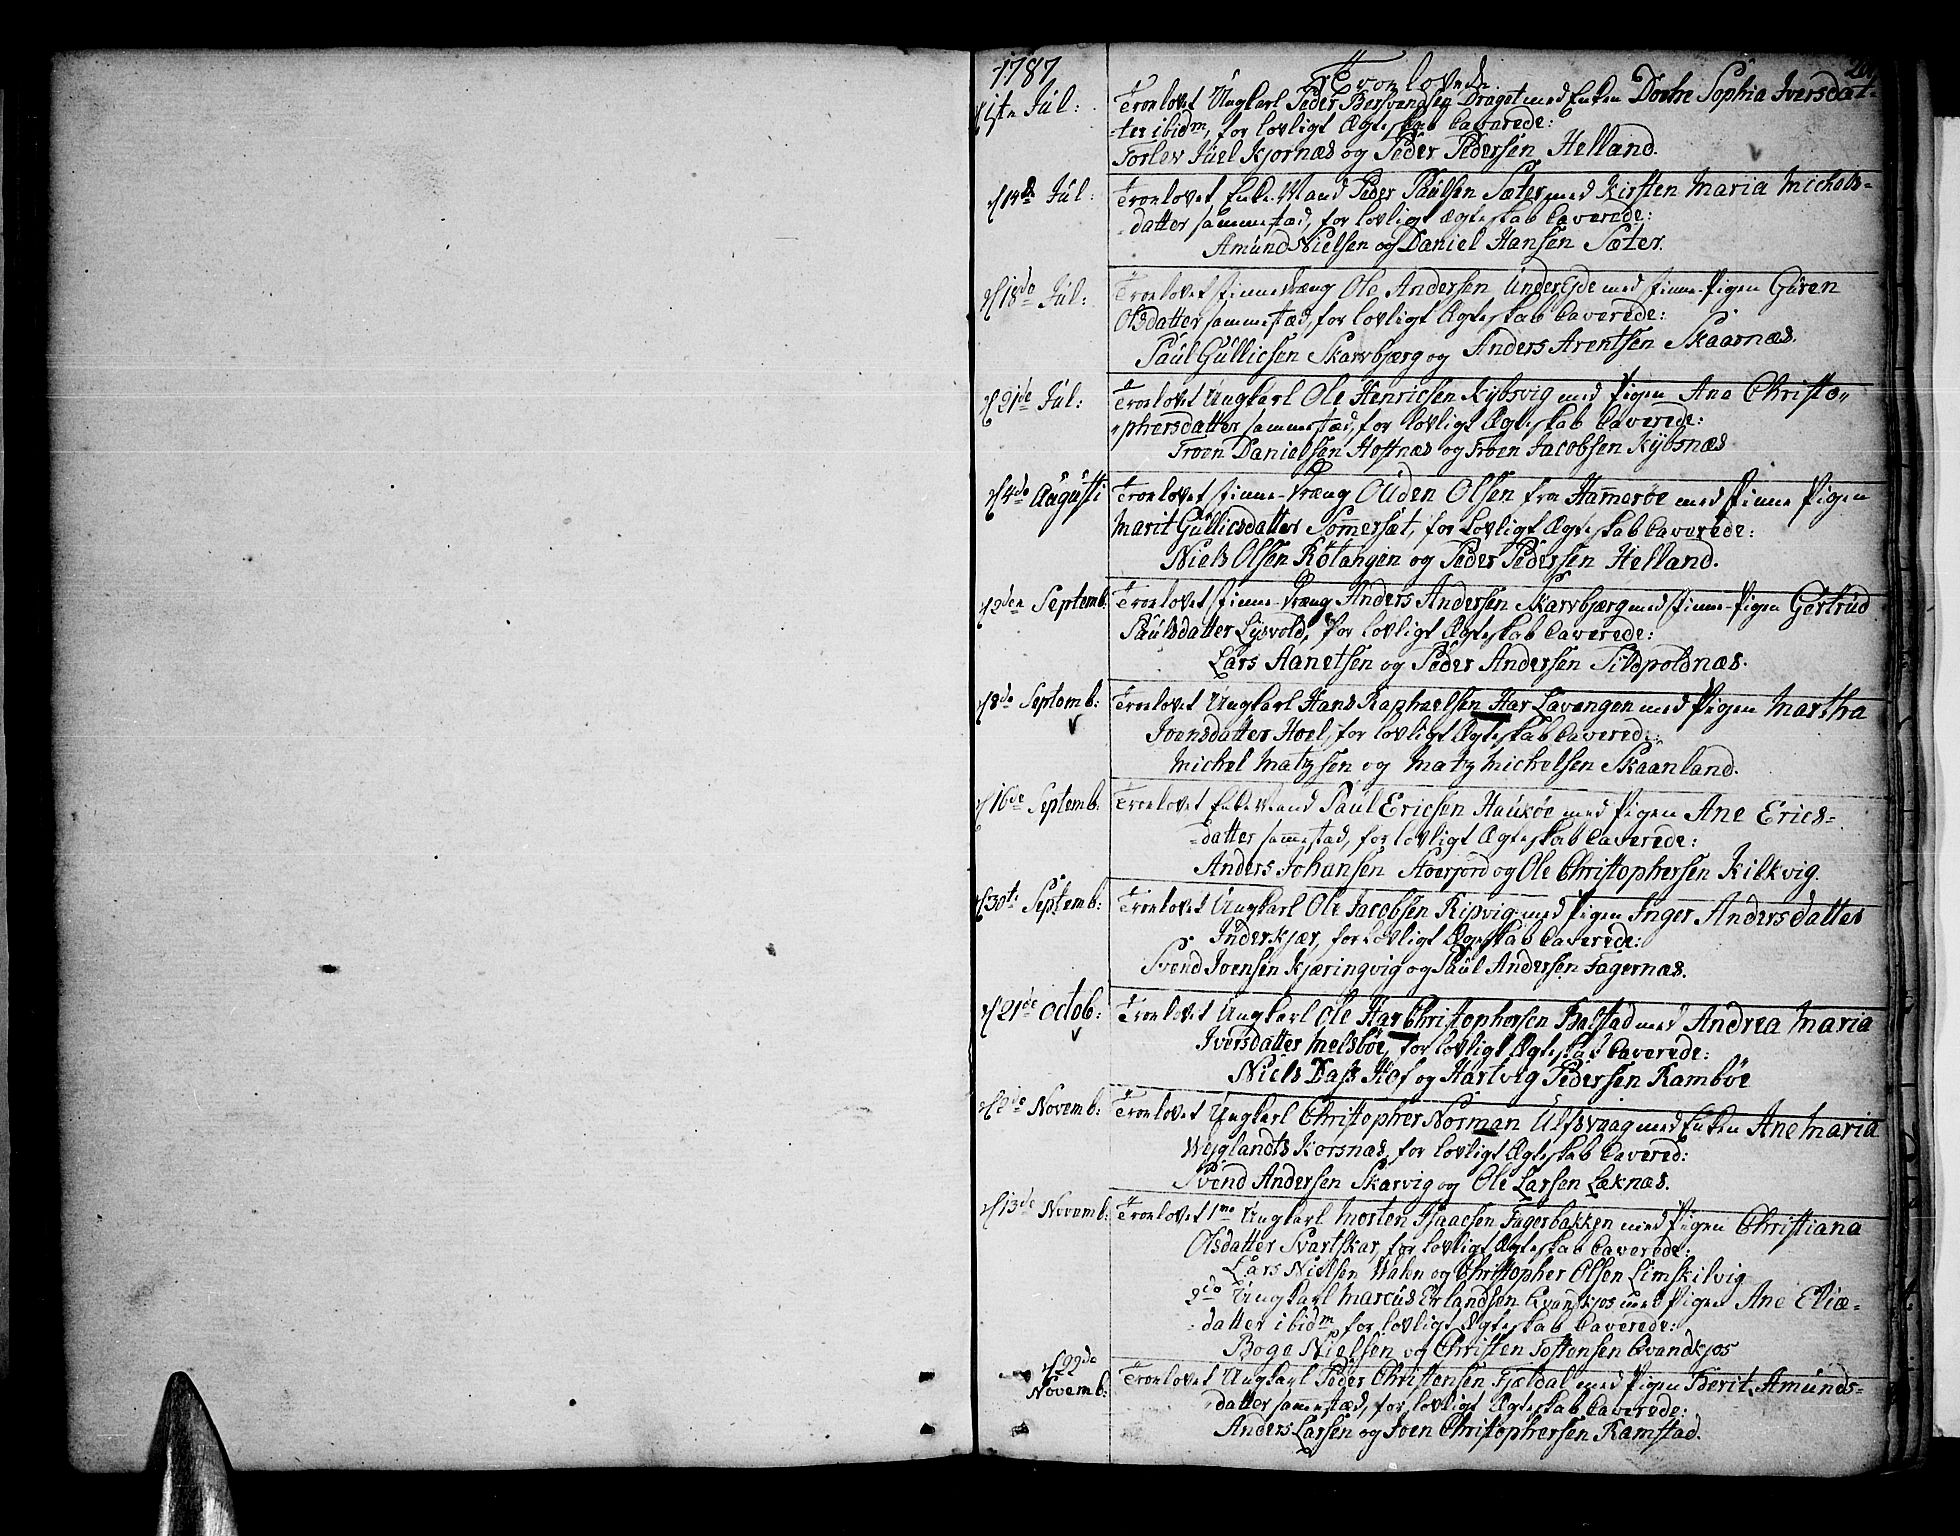 1787
Troelovede
1ste Jul: Troelovet Ungkarl Peder Bersvendsen Draget med Enken Dorthe Sophia Iversdat-
-ter ibidm, for lovligt Ægteskab Caverede:
Torlev Juel Kjörnæs og Peder Pedersen Helland.
d 14de Jul: Troelovet Enke-Mand Peder Paulsen Sæter med Kirsten Maria Michels-
-datter sammestæd, for lovligt Ægteskab Caverede:
Amund Nielsen og Daniel Hansen Sæter.
d 18de Jul: Troelovet Finne-Dræng Ole Andersen Under Eyde med Finne-Pigen Guren
Olsdatter sammestæd, for lovligt Ægteskab Caverede:
Paul Gullicsen Skarvbjærg og Anders Arentsen Skaarnæs.
d 21de Jul: Troelovet Ungkarl Ole Henricsen Kybsvig med Pigen Ane Christo„
„phersdatter sammestæd, for lovligt Ægteskab Caverede:
Troen Danielsen Hoftnæs og Troen Jacobsen Kybsnæs
d 4de Augusti Troelovet Finne-Dræng Ouden Olsen fra Ham̄eröe med Finne Pigen
Marit Gullicsdatter Som̄ersæt, for lovligt Ægteskab Caverede:
Niels Olsen Rötangen og Peder Pedersen Helland.
d 2den Septemb: Troelovet Finne-Dræng Anders Andersen Skarvbjærg med Finne-Pigen Gertrud
Paulsdatter Lysvold, for lovligt Ægteskab Caverede:
Lars Aanetsen og Peder Andersen Sildpoldnæs.
d 8de Septemb: Troelovet Ungkarl Hans Raphaelsen Har Lavangen med Pigen Martha
Joensdatter Hoel, for lovligt Ægteskab Caverede:
Michel Matzsen og Matz Michelsen Skaanland.
d 16de Septemb: Troelovet Enke-Mand Paul Ericsen Hauköe med Pigen Ane Erics-
-datter sam̄estæd, for lovligt Ægteskab Caverede:
Anders Johansen Hoerjord og Ole Christophersen Kilkvig.
d 30te Septemb: Troelovet Ungkarl Ole Jacobsen Ripvig med Pigen Inger Andersdatter
Inderkjær, for lovligt Ægteskab Caverede:
Svend Joensen Kjæringvig og Paul Andersen Fagernæs.
d 21de Octob: Troelovet Ungkarl Ole Har Christophersen Balstad med Andrea Maria
Iversdatter Melsböe, for lovligt Ægteskab Caverede:
Niels Dass Hof og Hartvig Pedersen Ramböe
d 2de Novemb: Troelovet Ungkarl Christopher Norman Ulfsvaag med Enken Ane Maria
Weglandts Korsnæs, for lovligt Ægteskab Cavered:
Svend Andersen Skarvig og Ole Larsen Læknæs.
d 13de Novemb: Troelovet 1mo Ungkarl Morten Isaacsen Fagerbakken med Pigen Christiana
Olsdatter Svartskar, for lovligt Ægteskab Caverede:
Lars Nielsen Walen og Christopher Olsen Limskilvig
2do Ungkarl Marcus Erlandsen Evandkjos med Pigen Ane Eliæ-
-datter ibidm, for lovligt Ægteskab Caverede:
Boge Nielsen og Christen Tostensen Evandkjos
d 22de Novemb: Troelovet Ungkarl Peder Christensen Fjeldal med Pigen Berit Amunds-
-datter sam̄estæd, for lovligt Ægteskab Caverede:
Anders Larsen og Joen Christophersen Ramstad.